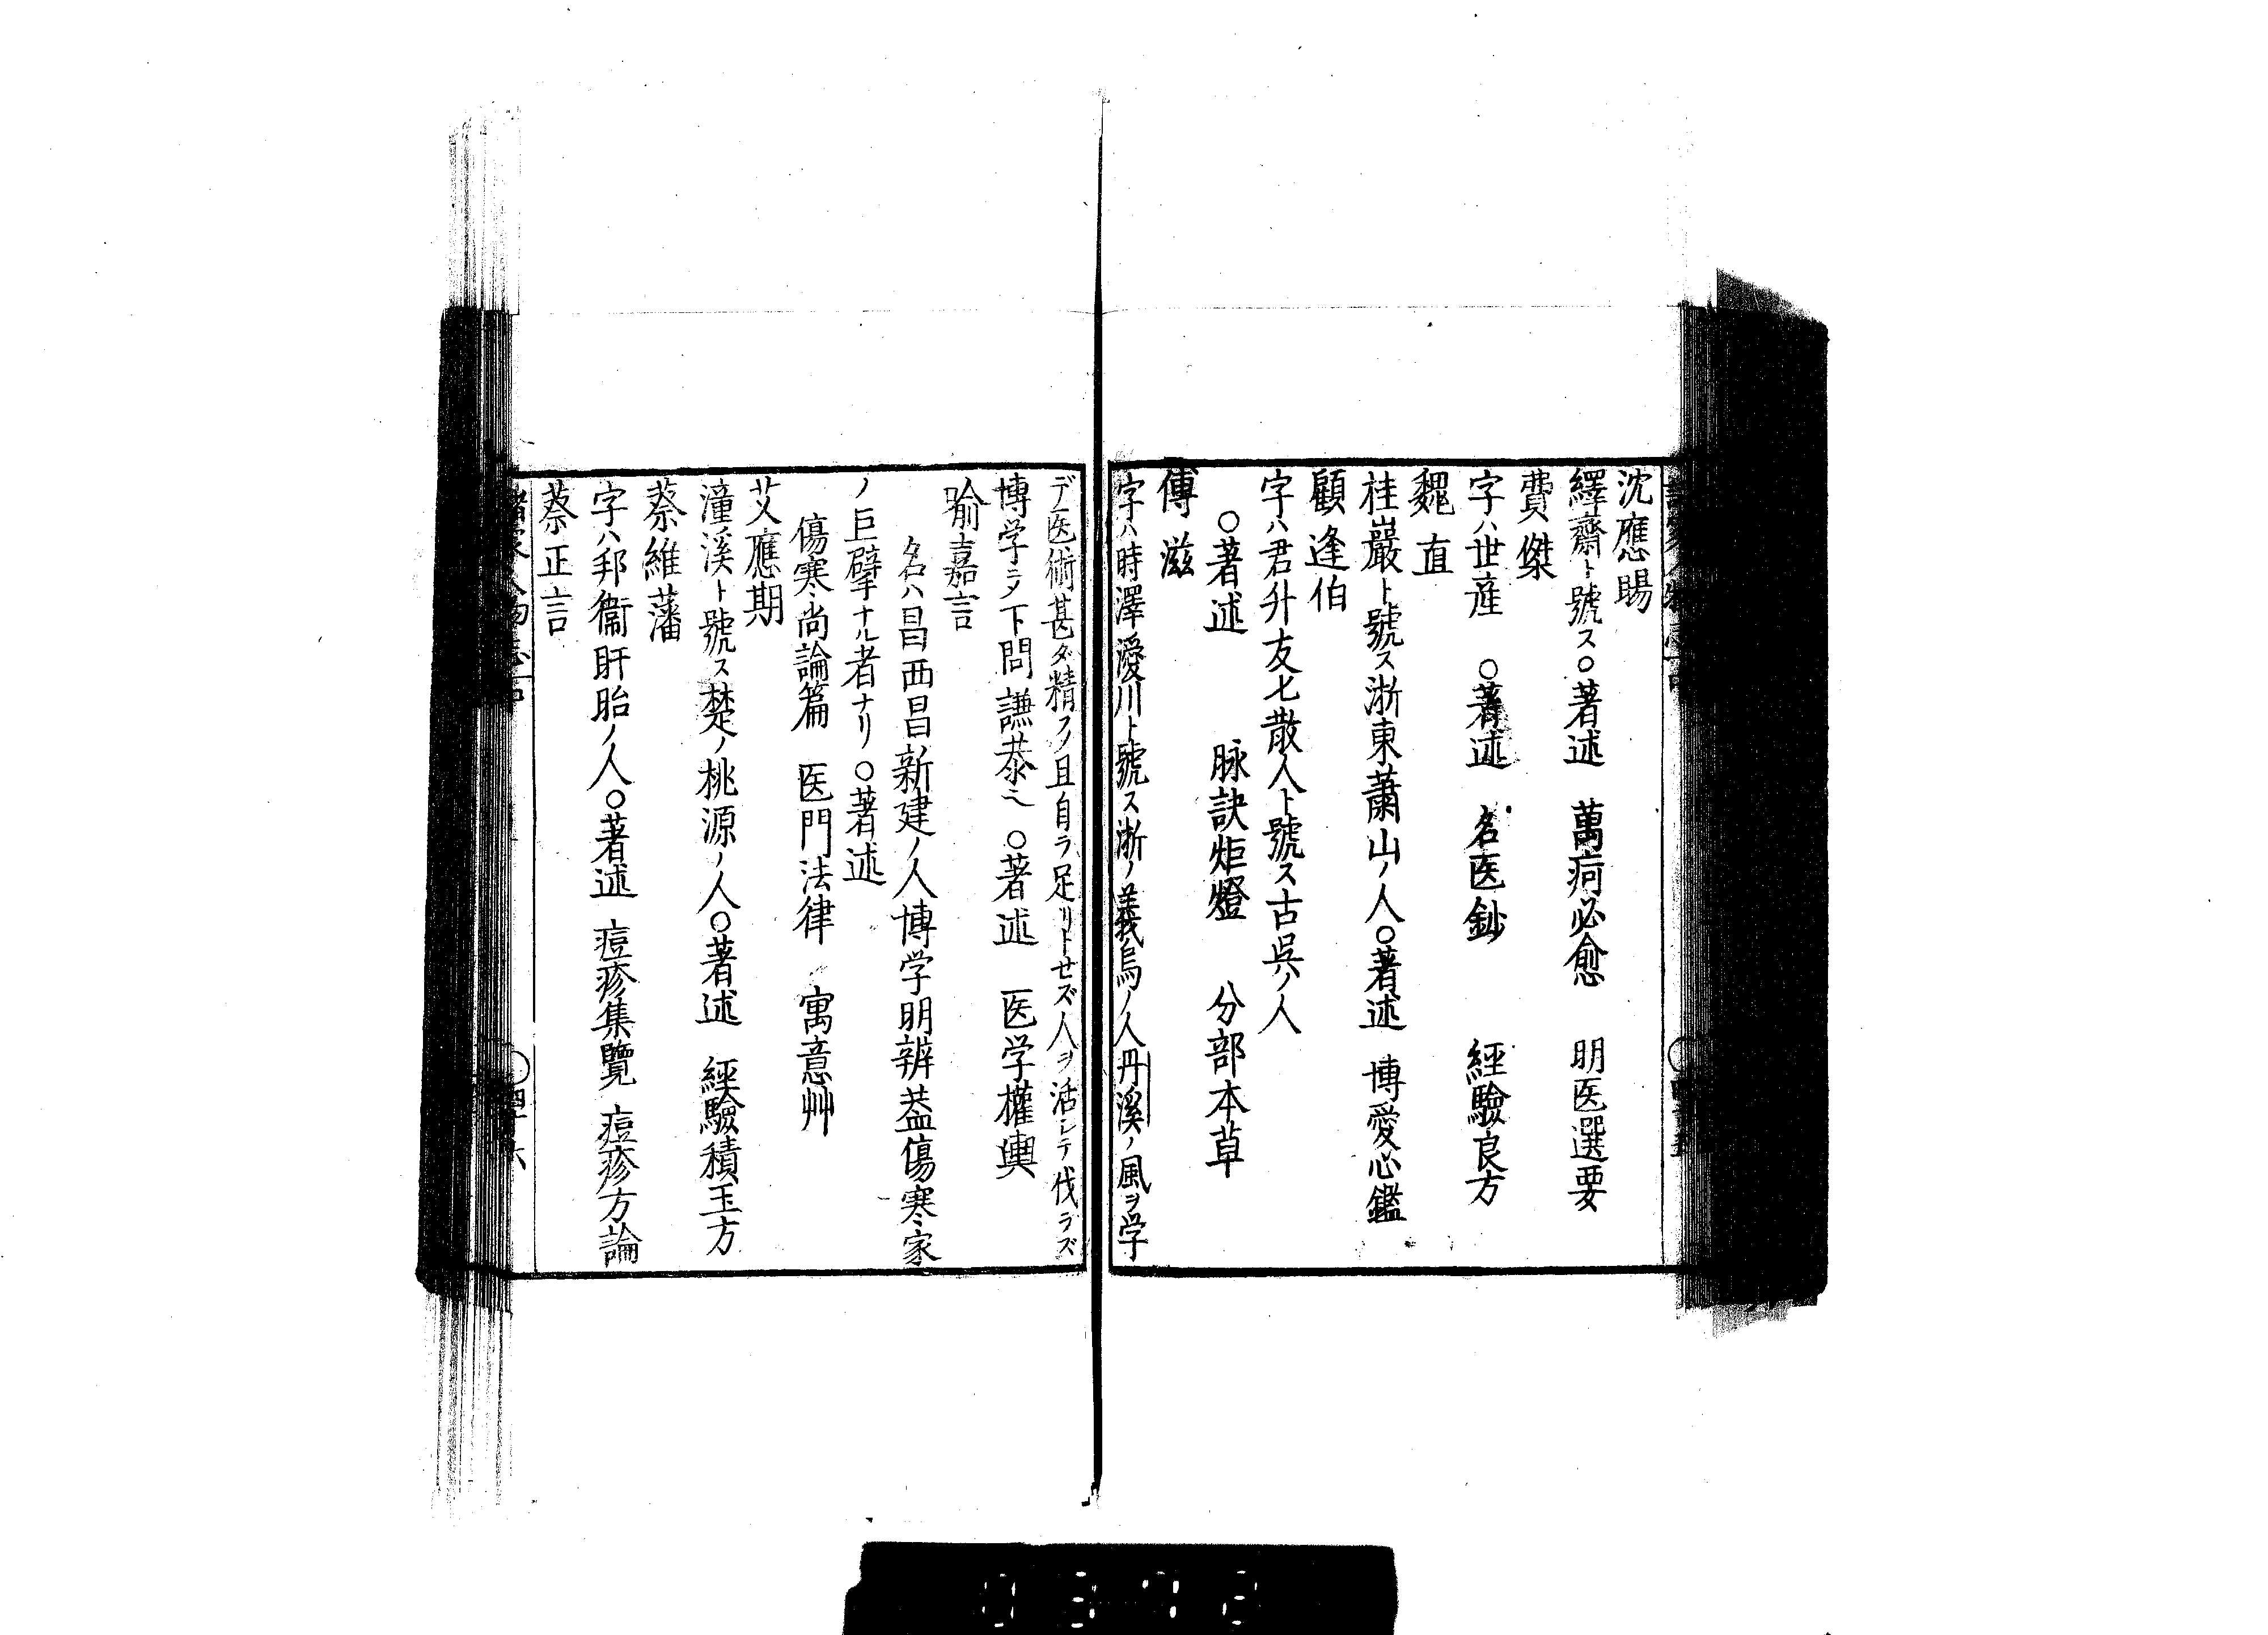 沈應暘
繹齋ト號ス○著述　萬病必愈　明医選要
費傑
字ハ世産　○著述　名医鈔　經驗良方
魏直
桂巖ト號ス浙東蕭山ノ人○著述　博愛心鑑
顧逢伯
字ハ君升友七散人ト號ス古呉ノ人
○著述　脉訣炬燈　分部本草
傅滋
字ハ時澤濲川ト號ス浙ノ義烏ノ人丹溪ノ風ヲ学
デ医術甚ダ精フノ且自ラ足リトセズ人ヲ活シテ伐ラズ
博学ニノ下問謙恭ニ　○著述　医学權輿
喻嘉言
名ハ昌西昌新建ノ人博学明辨葢傷寒家
ノ巨擘ナル者ナリ○著述
傷寒尚論篇　医門法律　寓意艸
艾應期
潼溪ト號ス楚ノ桃源ノ人○著述　經驗積玉方
蔡維藩
字ハ邦衞盱眙ノ人○著述　痘疹集覽　痘疹方論
蔡正言